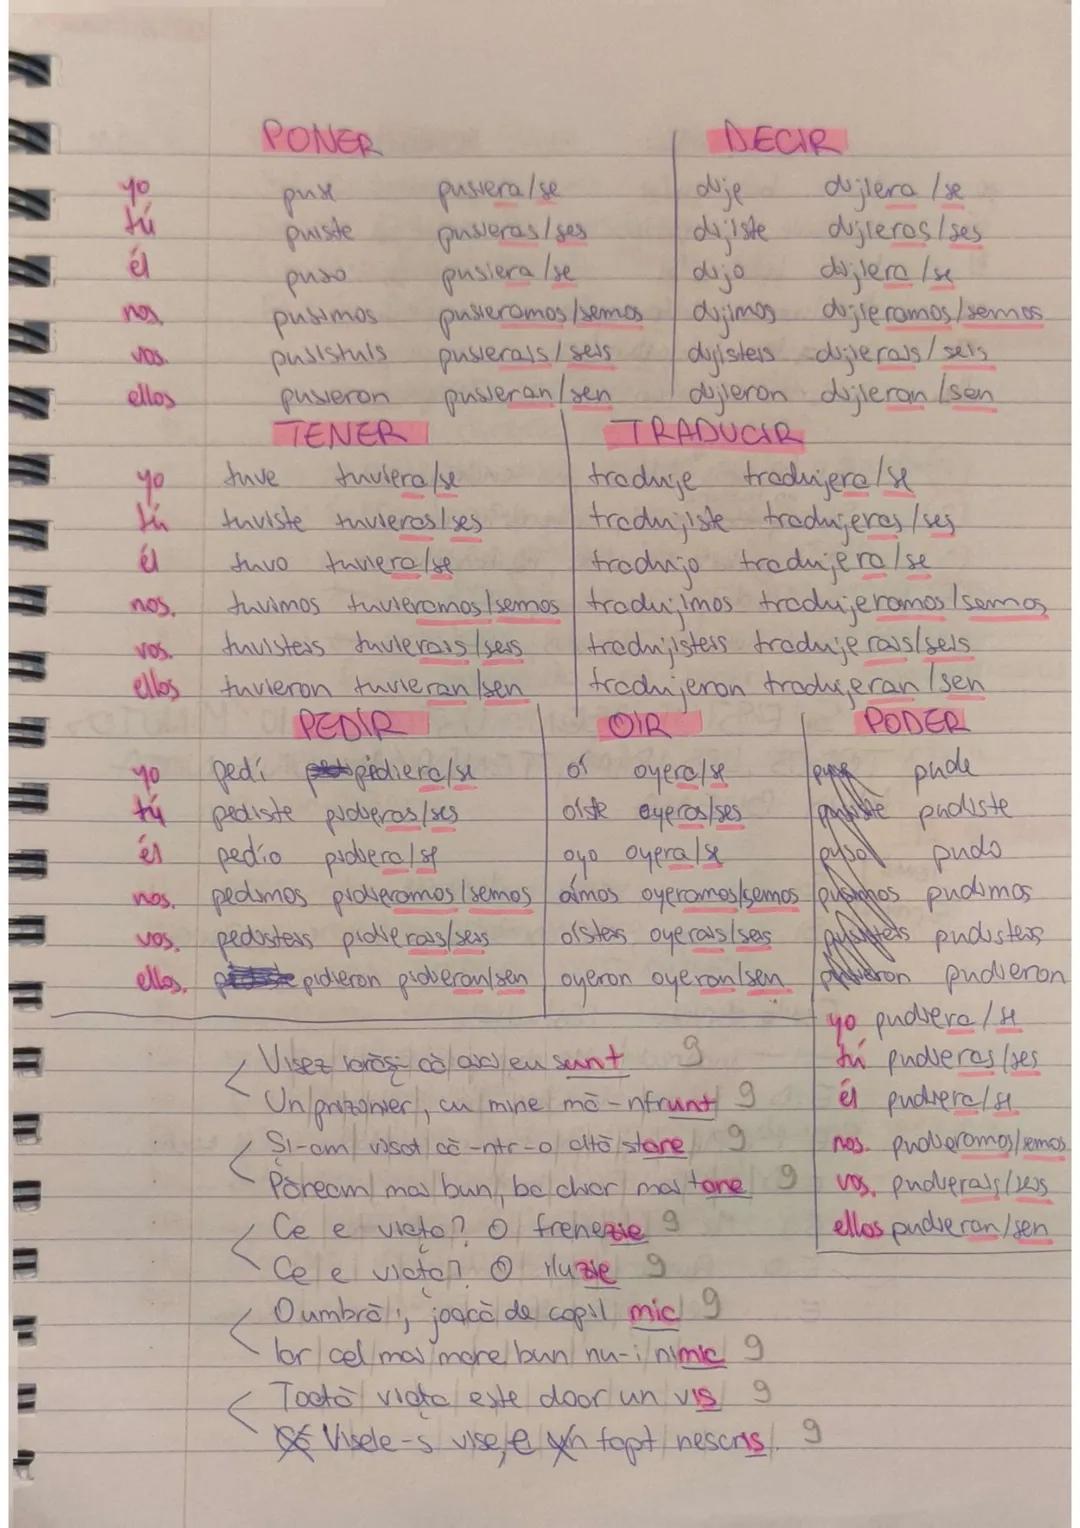 PONER DECIR
yo puse pusiera/se dije dijiera/se
tú pusiste pusieras/ses dijiste dijieras/ses
él puso pusiera/se dijo dijiera/se
nos. pusimos pusieramos/semos dijimos dijieramos/semos
vos. pusisteis pusierais/seis dijisteis dijierais/seis
ellos pusieron pusieran/sen dijieron dijieran/sen
TENER TRADUCIR
yo tuve tuviera/se traduje tradujera/se
tú tuviste tuvieras/ses tradujiste tradujeras/ses
él tuvo tuviera/se tradujo tradujera/se
nos. tuvimos tuvieramos/semos tradujimos tradujeramos/semos
vos. tuvisteis tuvierais/seis tradujisteis tradujerais/seis
ellos tuvieron tuvieran/sen tradujeron tradujeran/sen
PEDIR OIR PODER
yo pedí pidiera/se oí oyera/se pude
tú pediste pidieras/ses oíste oyeras/ses pudiste
él pedío pidiera/se oyo oyera/se pudo
nos. pedimos pidieramos/semos oímos oyeramos/semos pudimos
vos. pedisteis pidierais/seis oísteis oyerais/seis pudisteis
ellos. pidieron pidieran/sen oyeron oyeran/sen pudieron
yo pudiera/se
tú pudieras/ses
él pudiera/se
nos. pudieramos/semos
vos. pudierais/seis
ellos pudieran/sen
Visez iarăși că/aici/eu sunt 9
Un/prizonier/, cu mine mă-nfrunt 9
Și-am/visat/că-ntr-o/altă/stare 9
Păream/mai bun, ba chiar mai tare 9
Ce e viața? O frenezie 9
Ce/e viața? O iluzie 9
O umbră/; joacă de copil mic 9
Iar/cel/mai/mare/bun/nu-i/nimic 9
Toată/viața/este/doar/un vis 9
Visele-s vise, e un fapt/nescris. 9